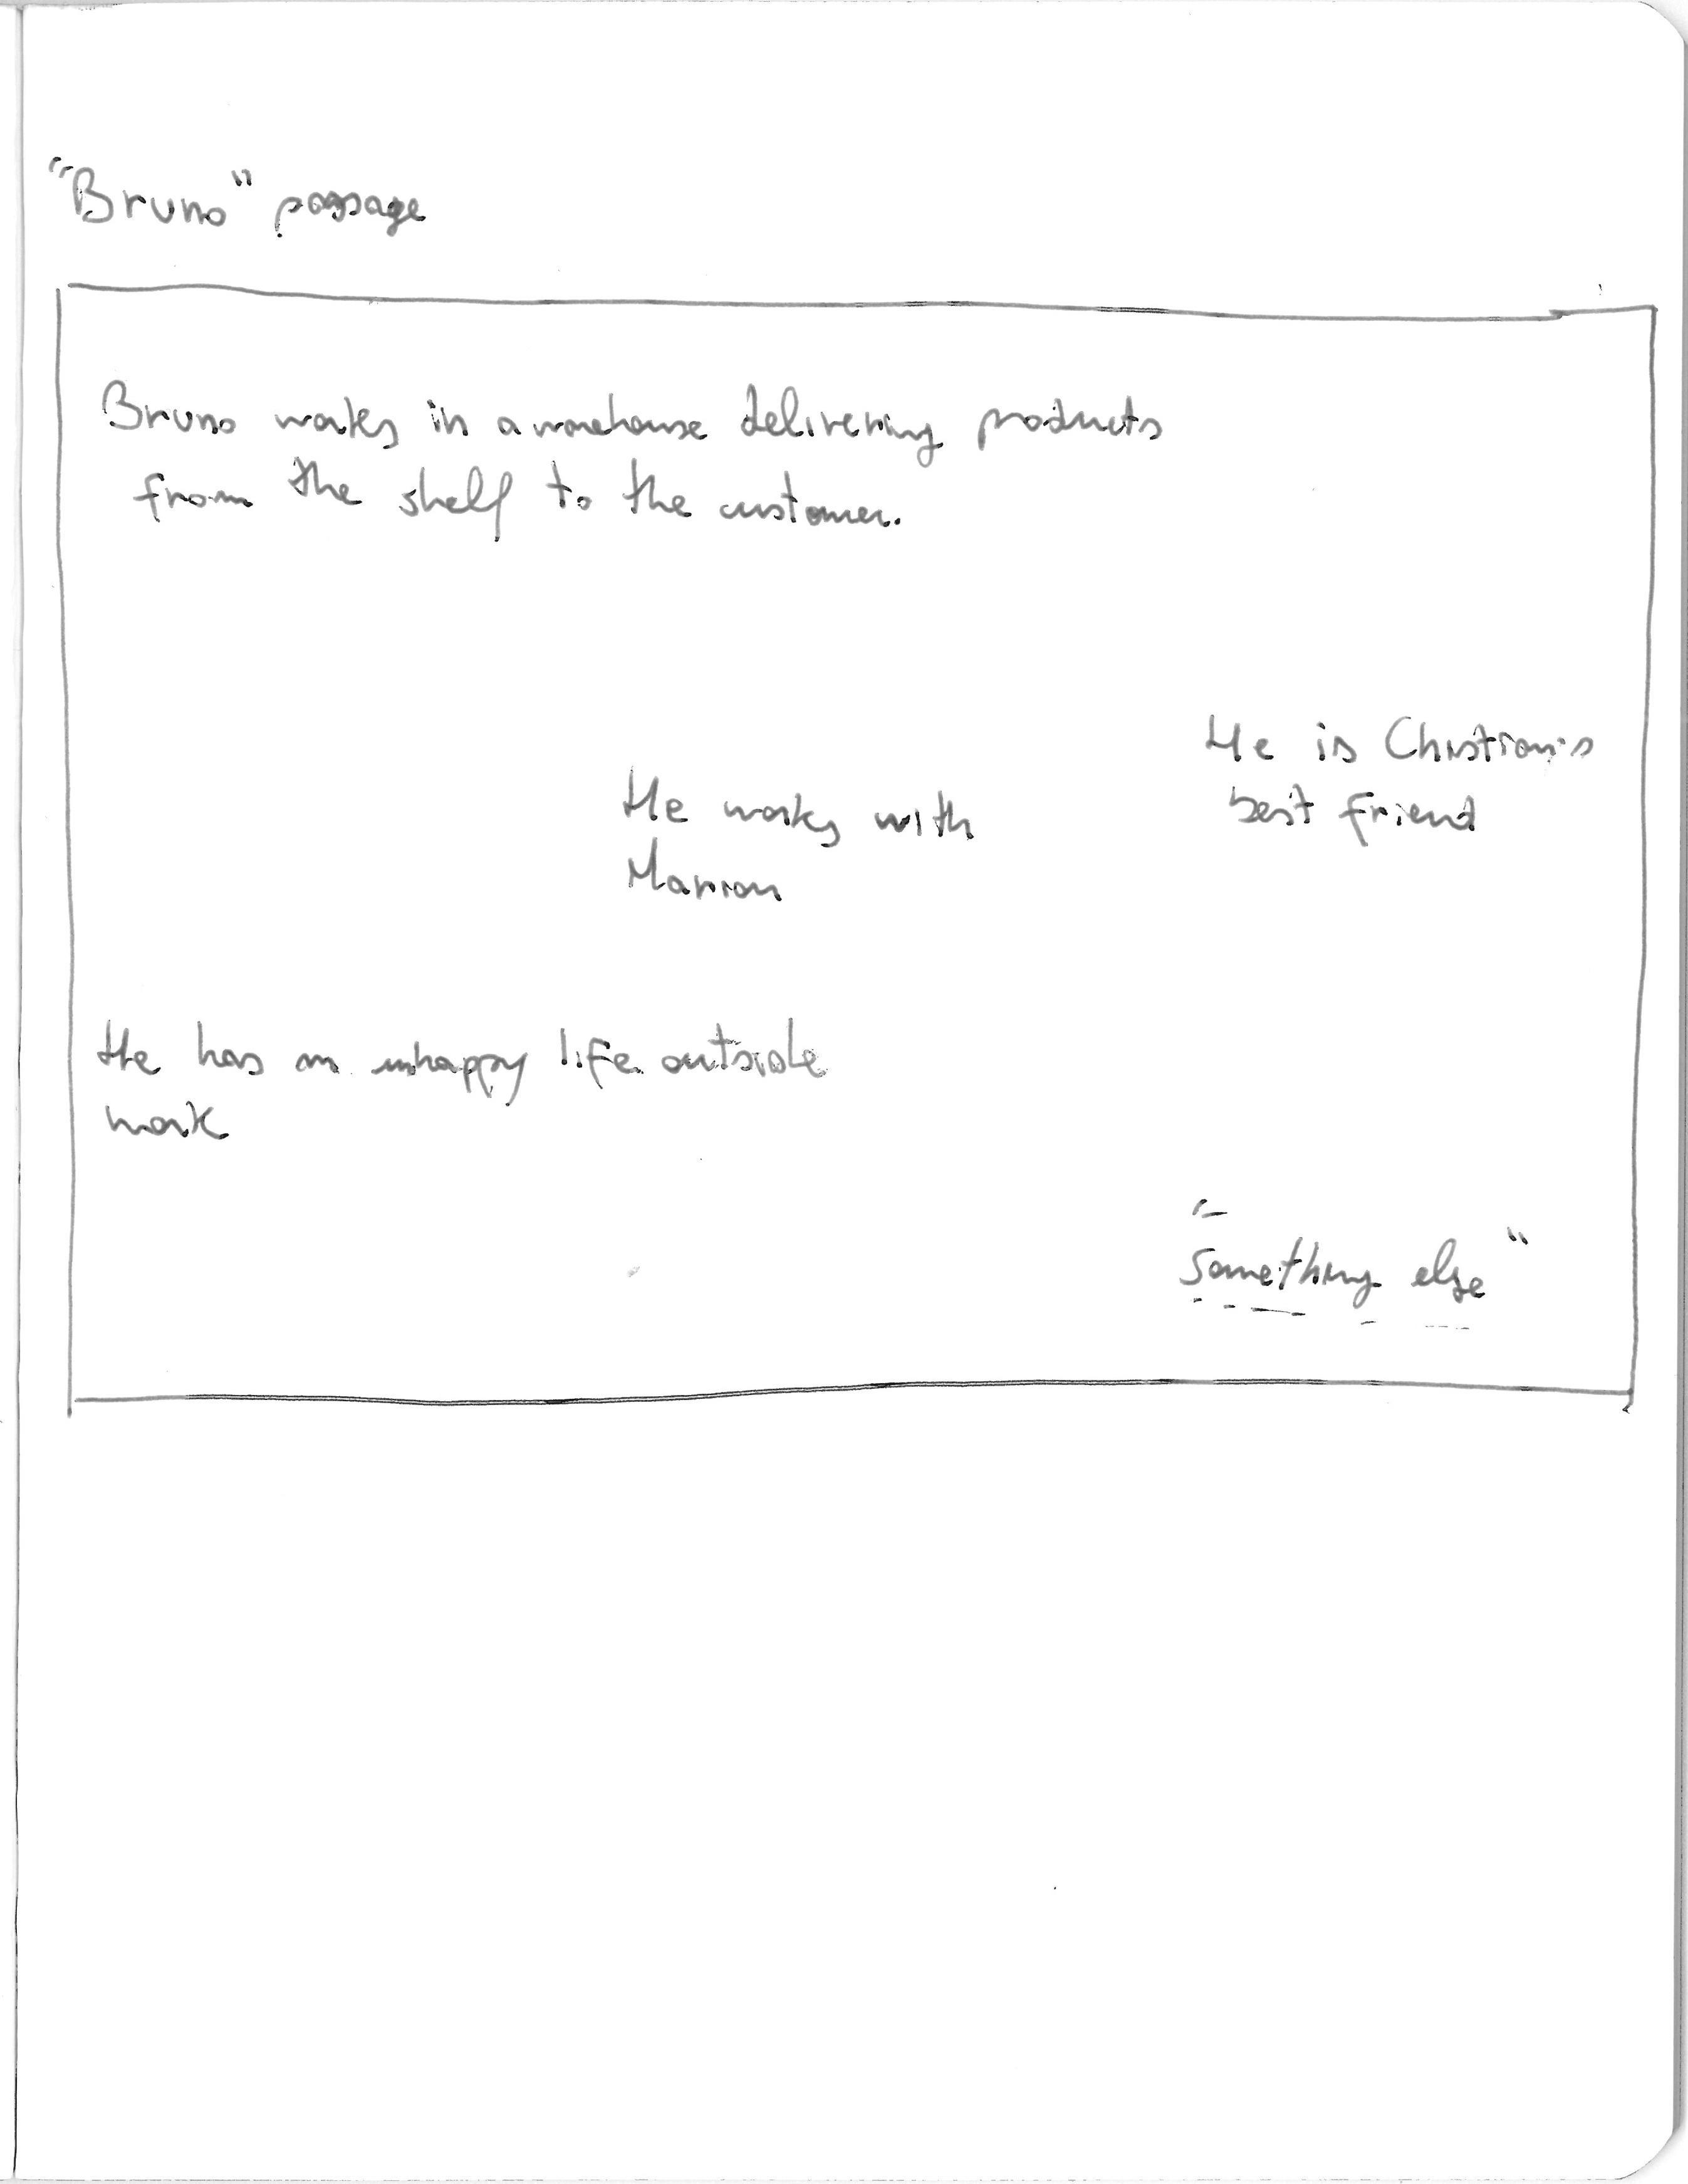 "Bruno" passage
Bruno works in a warehouse delivering products
from the shelf to the customer.
He is Christian's
best friend
He works with
Marion
He has an unhappy life outside
work
"something else"